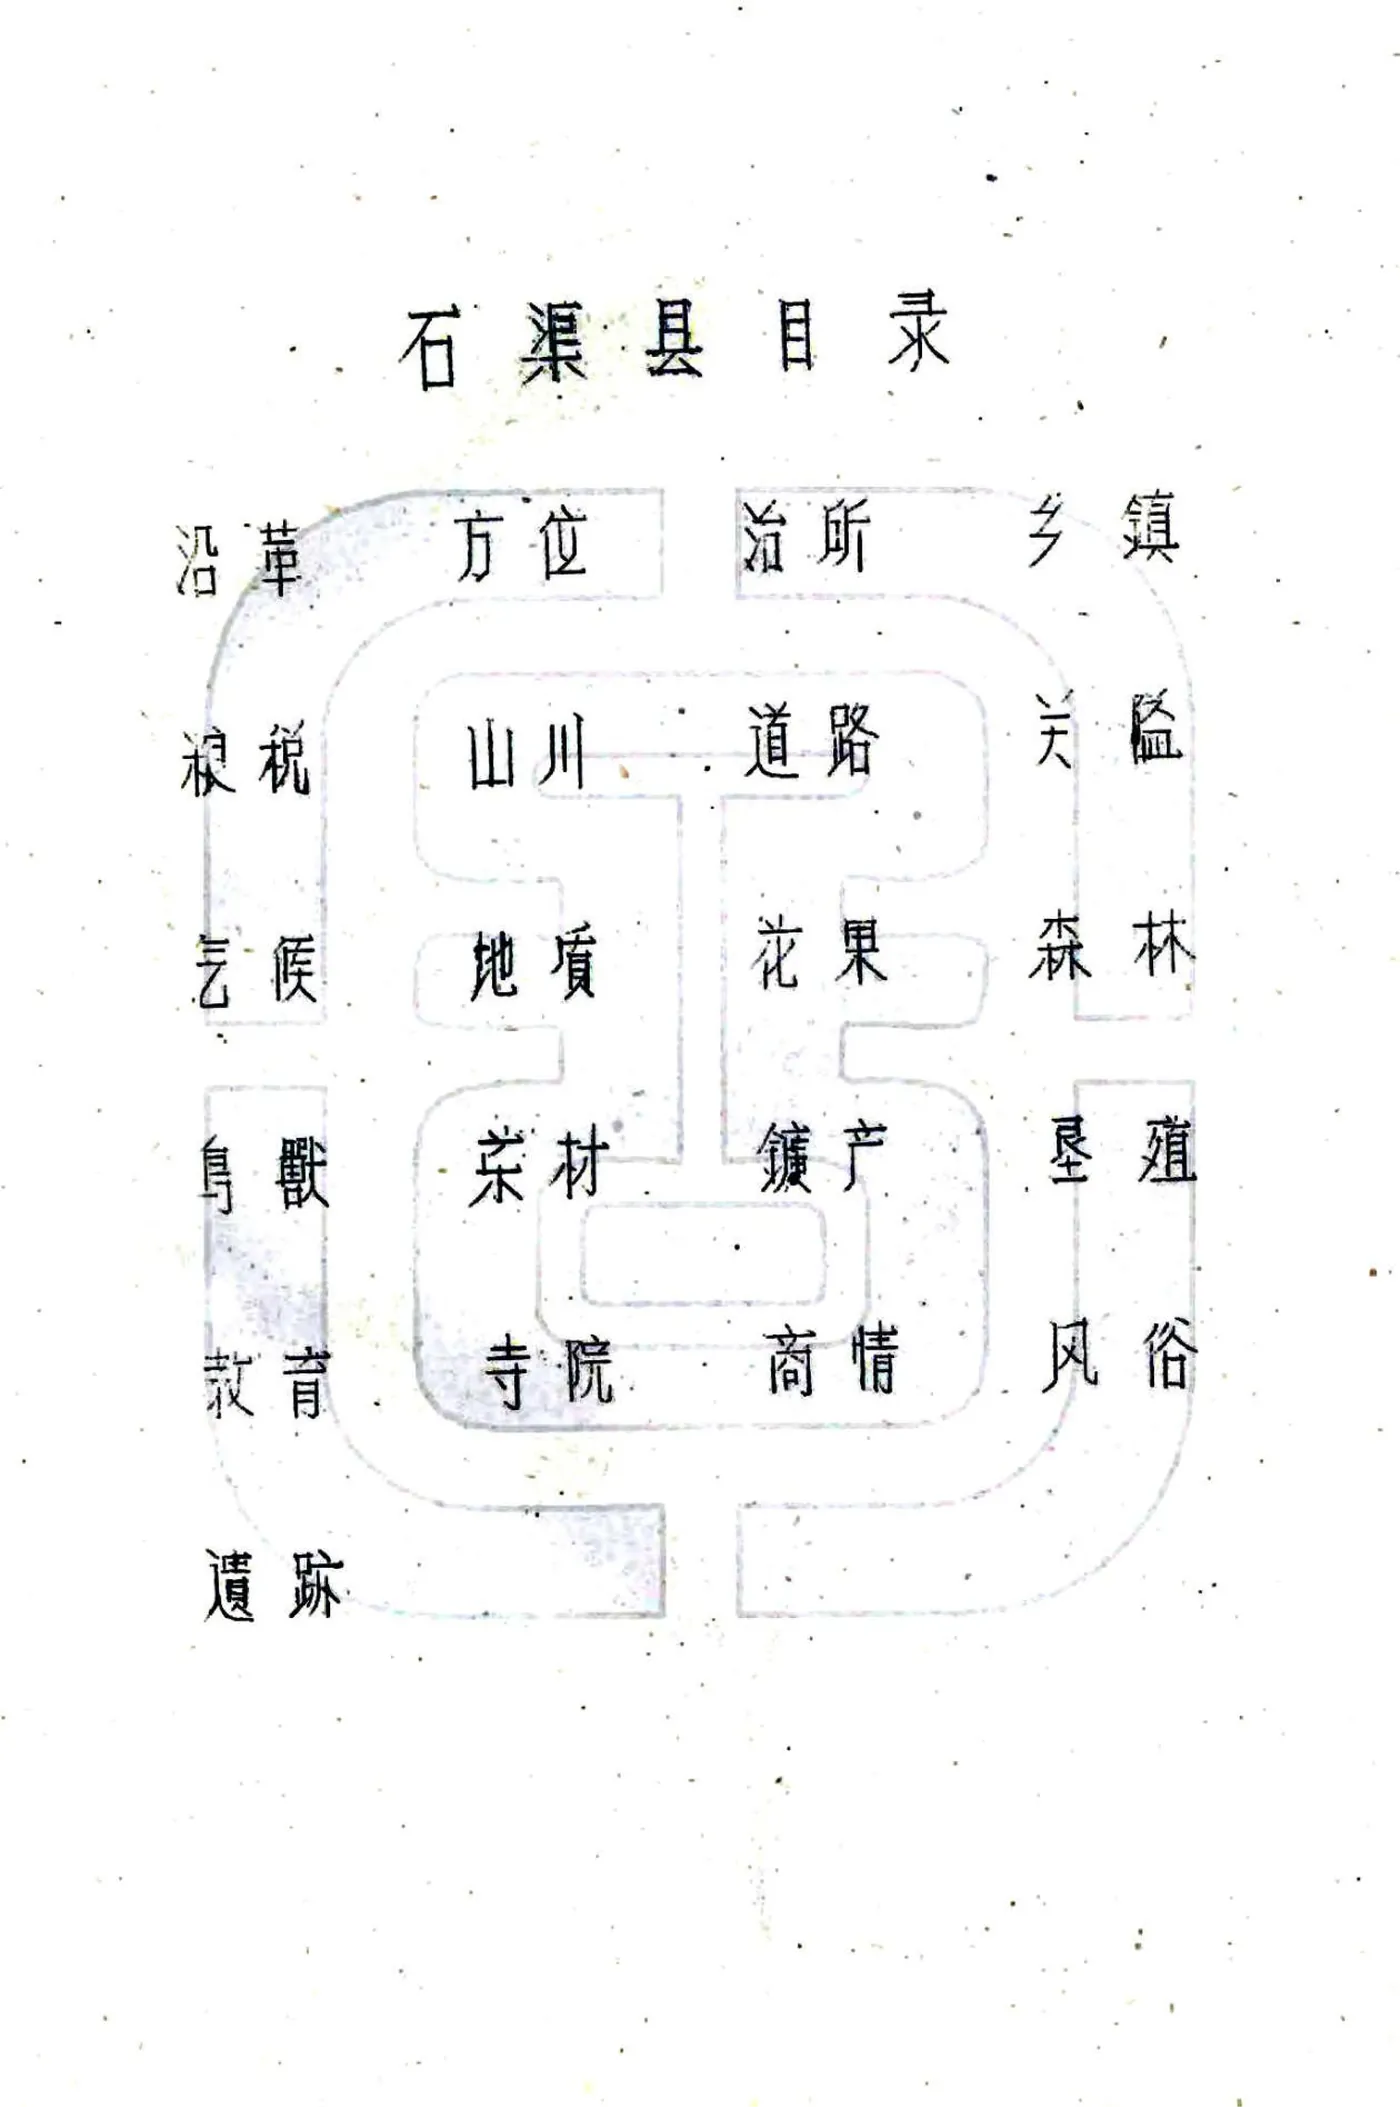 石渠县目录
沿革 方位 治所 乡鎮
粮税 山川 道路 关隘
气候 地質 花果 森林
鸟獸 药材 鑛产 垦殖
教育 寺院 商情 风俗
遺跡